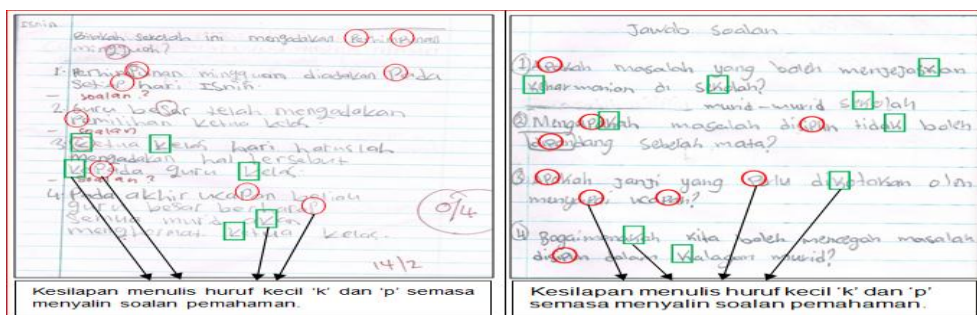 Isnin
Bilakah sekolah ini mengadakan Perhimpunan
mingguan?
1. Perhimpunan mingguan diadakan Pada
hari Isnin.
- soalan?
2. Guru besar telah mengadakan
Pemilihan Ketua Kelas
- soalan?
3. Ketua Kelas hari
mengadakan hal tersebut
KePada guru Kelas.
- soalan?
4. Pada akhir ucaPan
guru besar berharaP
semua murid
menghormati Ketua Kelas.
0/4
14/2
Kesilapan menulis huruf kecil 'k' dan 'p' semasa
menyalin soalan pemahaman.
Jawab Soalan
① APakah masalah yang boleh menjejaskan
Keharmonian di seKolah?
murid-murid seKolah
② MengaPaKah masalah disiPlin tidaK boleh
diPandang sebelah mata?
③ APakah janji yang Perlu diKotakan oleh
④ BagaimanaKah kita boleh mencegah masalah
disiPlin dalam Kalangan murid?
Kesilapan menulis huruf kecil 'k' dan 'p'
semasa menyalin soalan pemahaman.